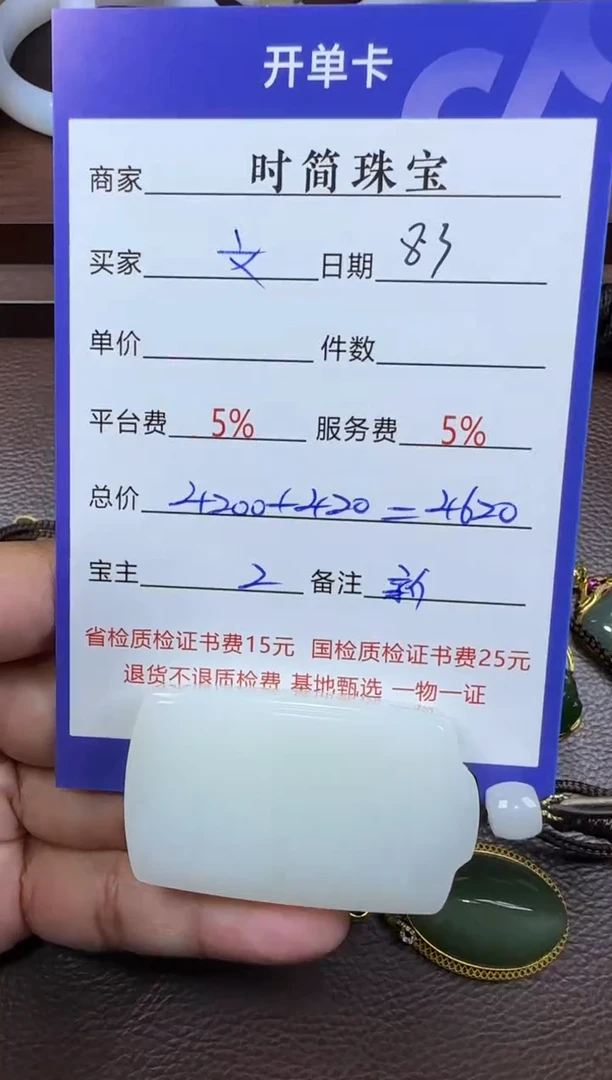 开单卡
商家 时简珠宝
买家 文 日期 83
单价 件数
平台费 5% 服务费 5%
总价 4200+420=4620
宝主 2 备注 新
省检质检证书费15元 国检质检证书费25元
退货不退质检费 基地甄选 一物一证